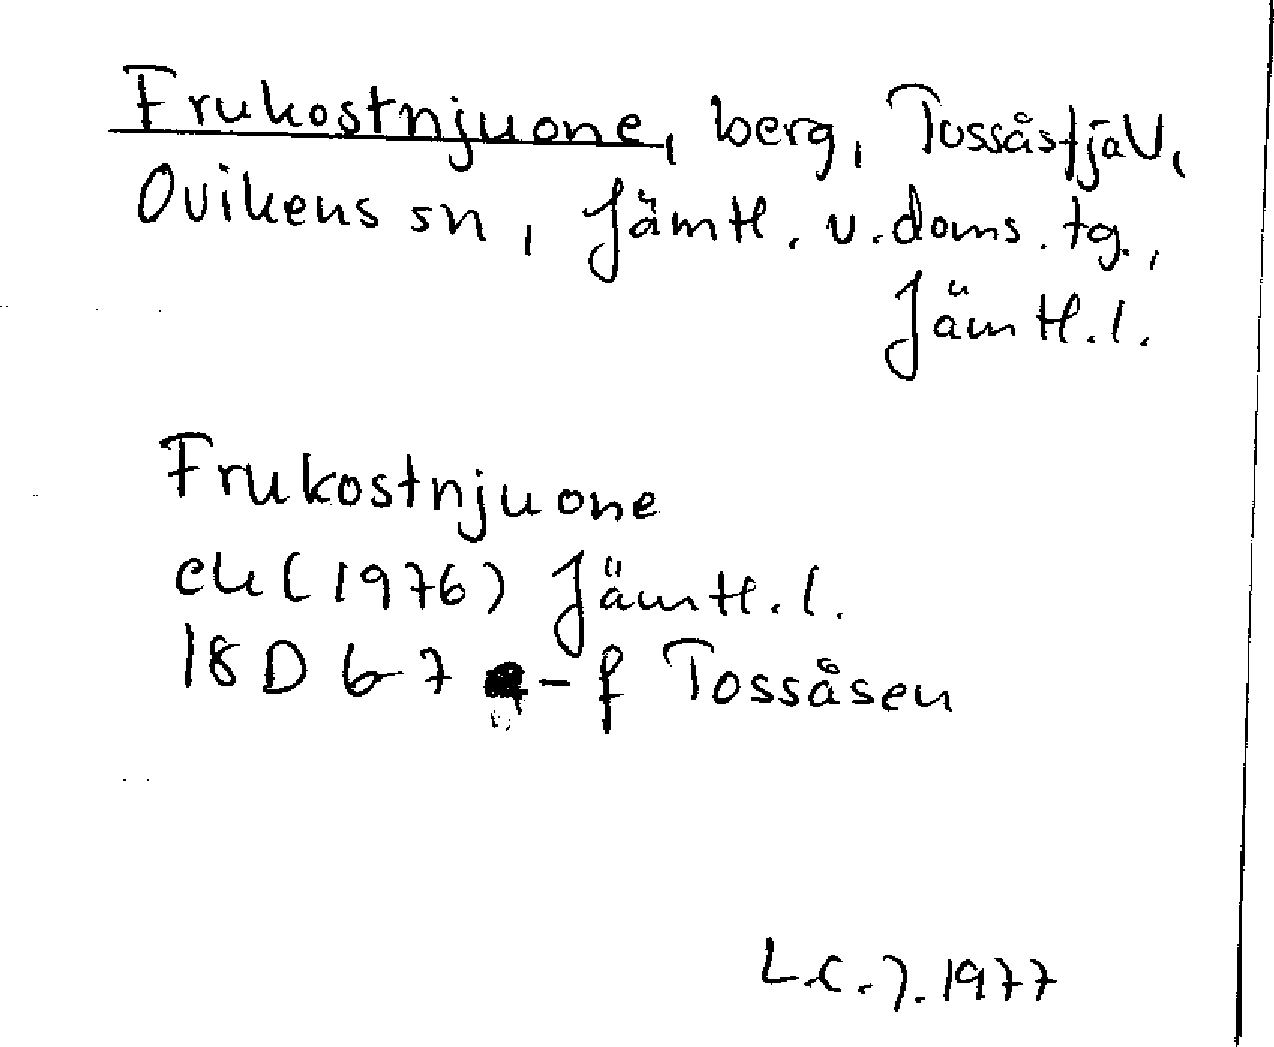 Frukostnjuone, berg, Tossåsfjäll,
Ovikens sn, Jämtl. v. doms. tg.,
Jämtl. l.
Frukostnjuone
ek (1976) Jämtl. l.
18 D 6-7 -f Tossåsen
L.C.J. 1977